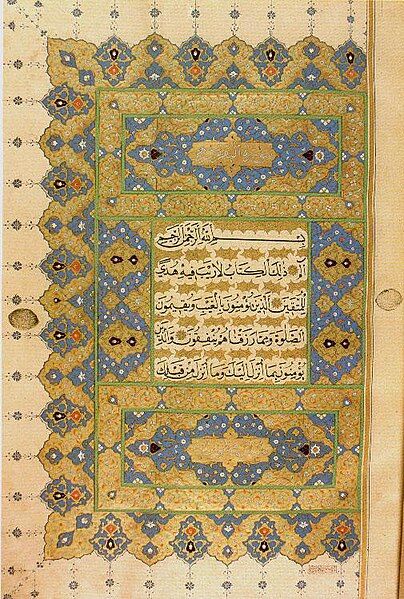 بسم الله الرحمن الرحيم
الم ذلك الكتاب لا ريب فيه هدى
للمتقين الذين يؤمنون بالغيب ويقيمون
الصلوة ومما رزقناهم ينفقون والذين
يؤمنون بما انزل اليك وما انزل من قبلك